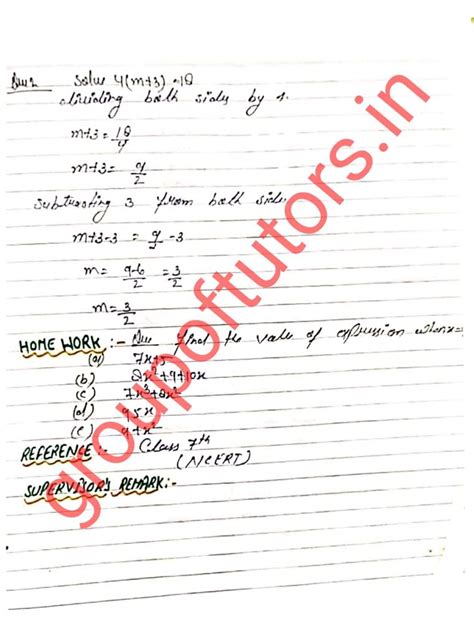 Que2 Solve 4(m+3) = 18
dividing both sides by 4.
m+3 = 18/4
m+3 = 9/2
Subtracting 3 from both side.
m+3-3 = 9/2 - 3
m = 9-6/2 = 3/2
m = 3/2
HOME WORK :- Que find the value of expression when x=
(a) 7x+5
(b) 2x²+9+10x
(c) 7x³+2x²
(d) 95x
(e) 9+x²
REFERENCE :- Class 7th
(NCERT)
SUPERVISOR'S REMARK :-
groupoftutors.in